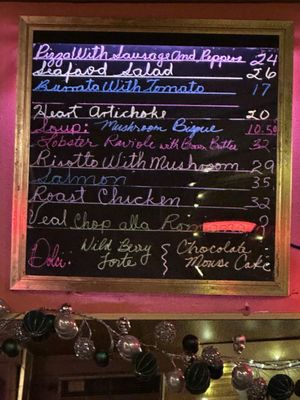 Pizza With Sausage And Peppers 24
Seafood Salad 26
Burrata With Tomato 17
Heart Artichoke 20
Soup: Mushroom Bisque 10.50
Lobster Raviole with Brown Butter 32
Risotto With Mushroom 29
Salmon 35
Roast Chicken 32
Veal Chop alla
Dolci: Wild Berry Torte
Chocolate Mouse Cake